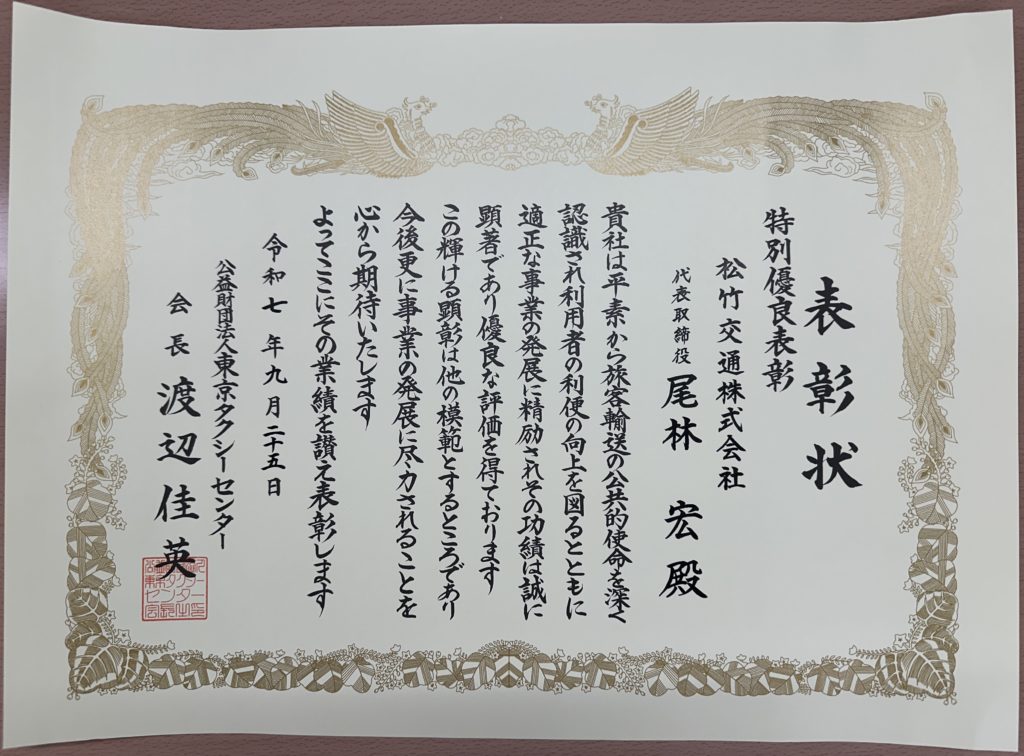 表彰状
特別優良表彰
松竹交通株式会社
代表取締役 尾林 宏 殿
貴社は平素から旅客輸送の公共的使命を深く
認識され利用者の利便の向上を図るとともに
適正な事業の発展に精励されその功績は誠に
顕著であり優良な評価を得ております
この輝ける顕彰は他の模範とするところであり
今後更に事業の発展に尽力されることを
心から期待いたします
よってここにその業績を讃え表彰します
令和七年九月二十五日
公益財団法人東京タクシーセンター
会長 渡辺佳英